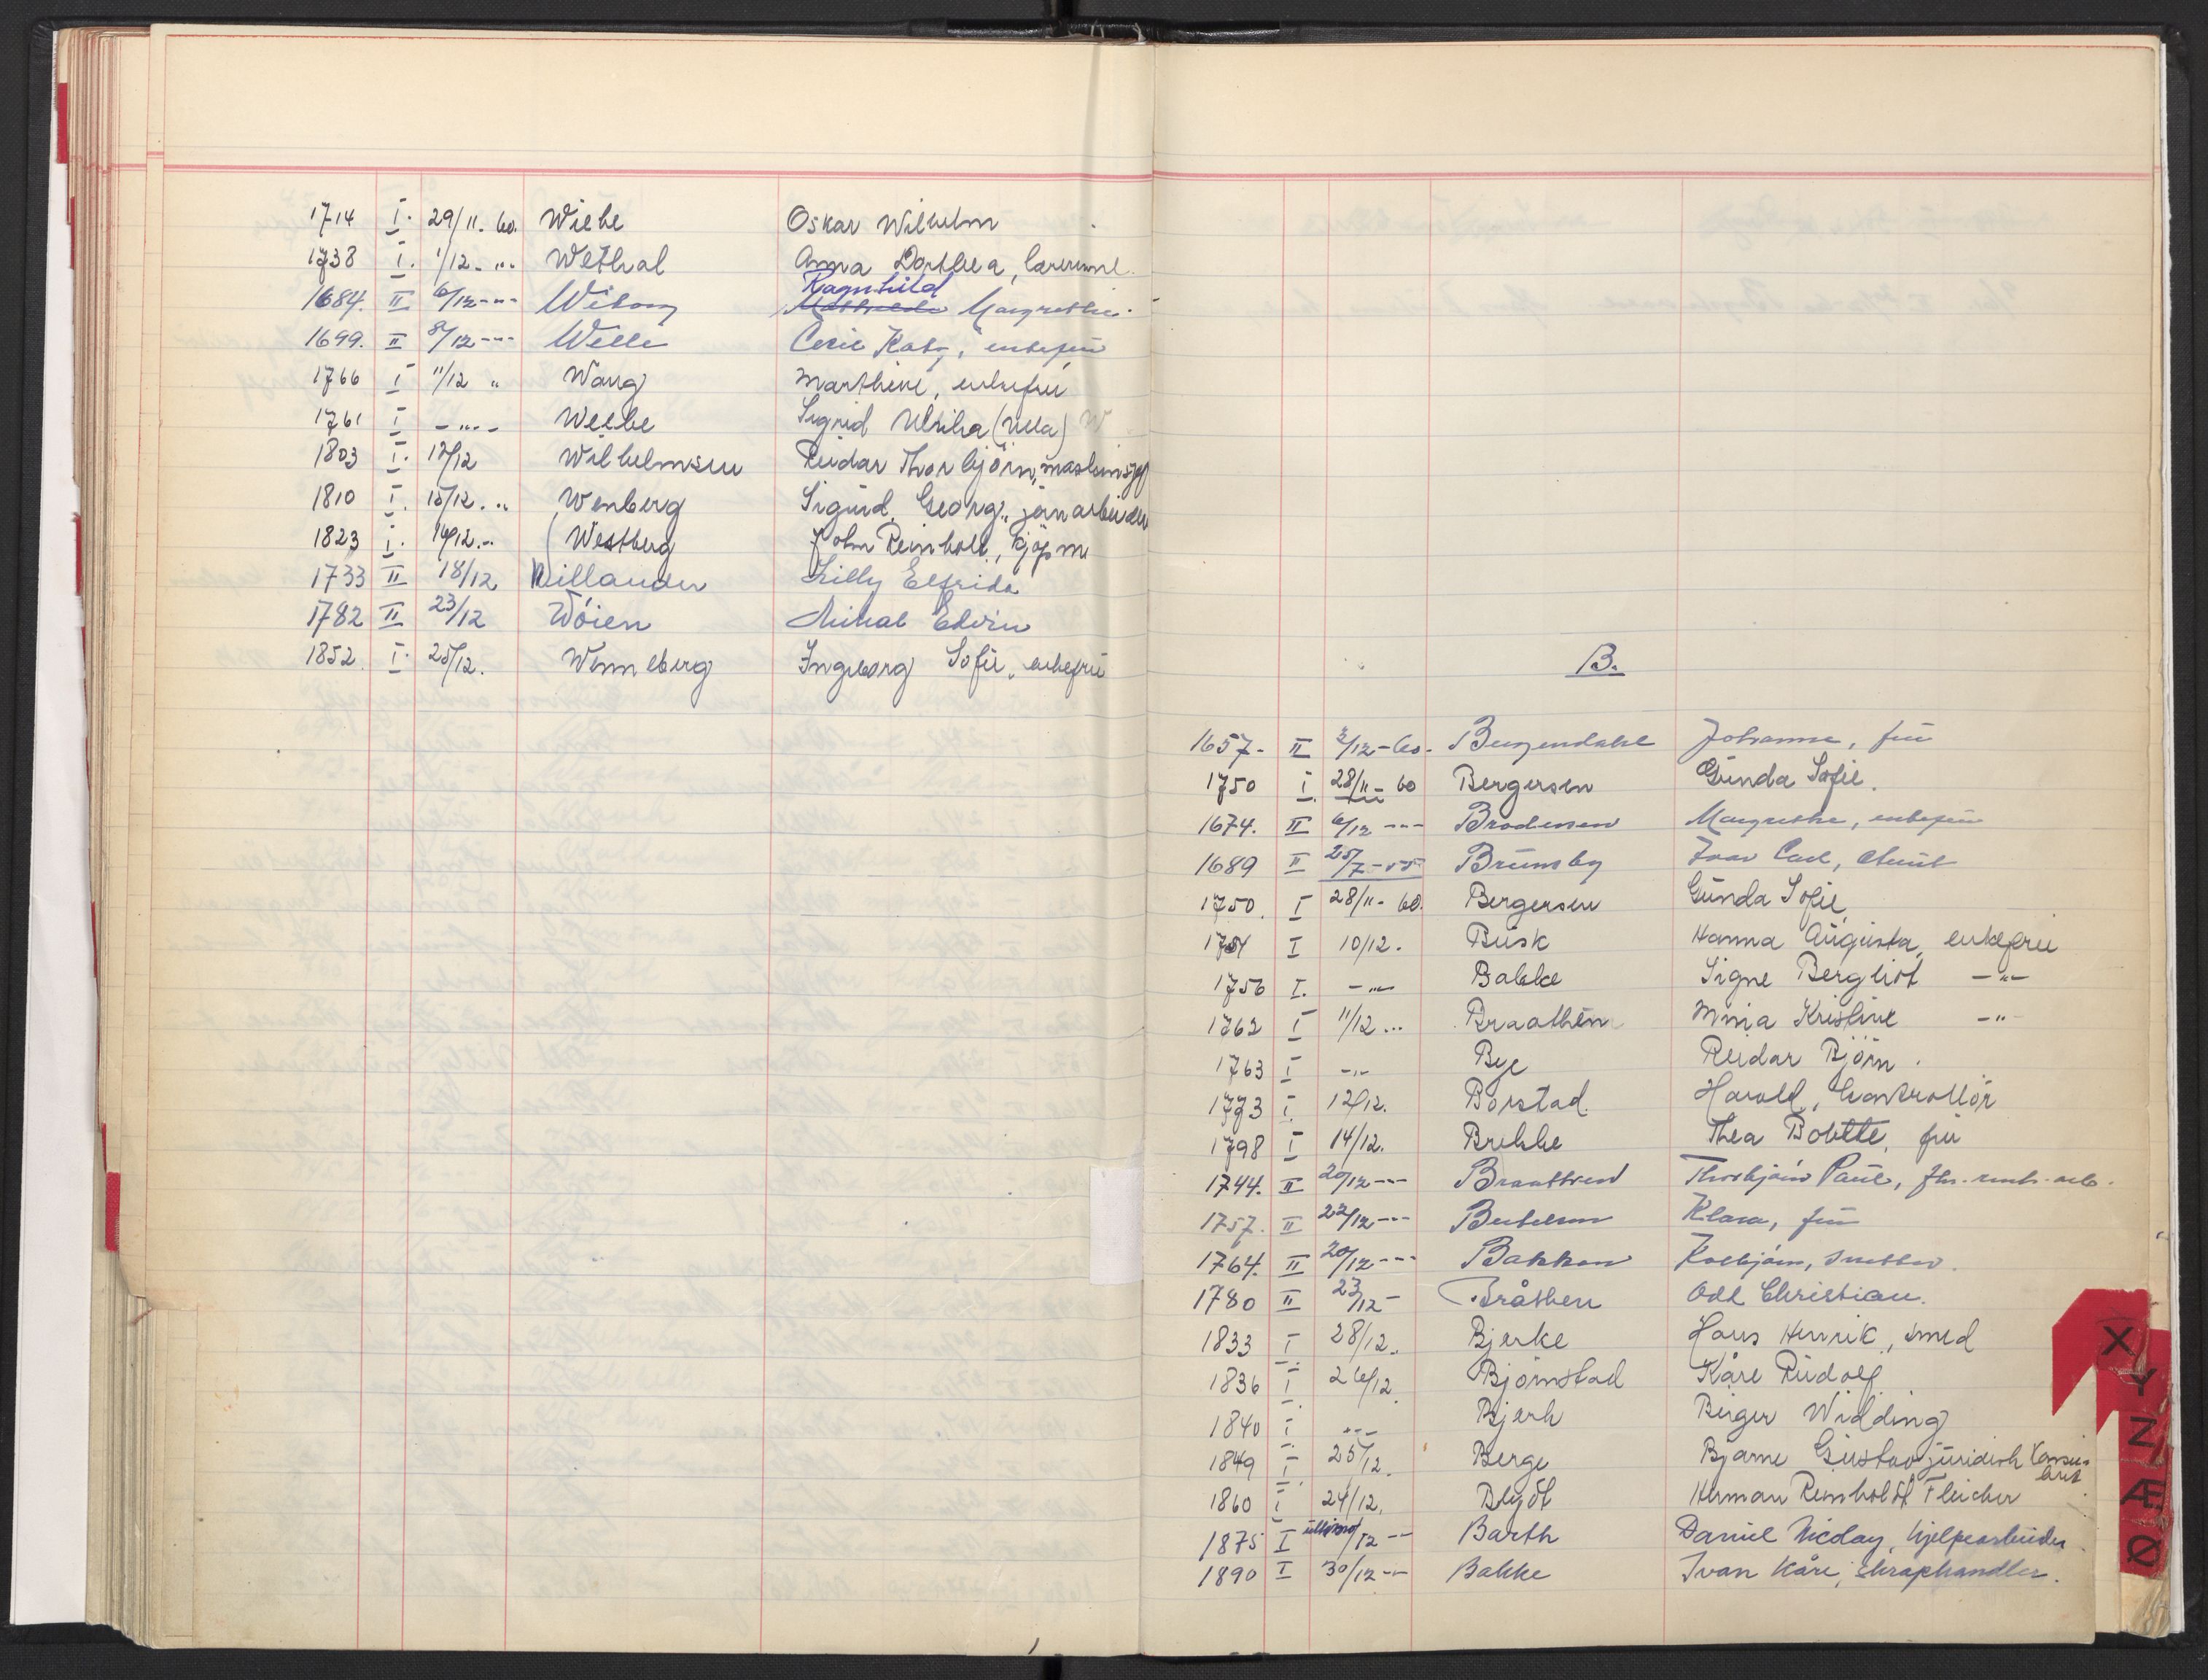 1714 I. 29/11. 60. Wiebe Oskar Wilhelm
1738 I. 1/12 - " - Wethal Anna Dorthea, lærerinne.
Ragnhild
1684. II 6/12 - " - Wiborg Margrethe.
1699. II 8/12 - " - Welle enkefru
1766 I 11/12 " Wang Marthine, enkefru
1761 I - " - Weebe Sigrid Ulrika (Ulla) W
1803 I. 12/12 Wilhelmsen Reidar Thorbjörn,
1810 I. 15/12. " Wenberg Sigurd Georg, jernarbeider
1823 I. 16/12. - Westberg John Reinholt, kjøpm
1733 II 18/12 Willander Lilly Elfrida
1782 II 23/12 Wöien Mikal Edvin
1852. I. 25/12. Wenneberg Ingeborg Sofie, enkefru
B.
1657 - II 2/12 - 60. Bergendahl Johanne, fru
1750 I. 28/11 - 60 Bergersen Gunda Sofie.
1674. II 6/12 - " - Brodersen Margrethe, enkefru
1689 II 25/7 - 55 Brunsby Ivar Carl,
1750. I 28/11 - 60. Bergersen Gunda Sofie
1754 I 10/12. Busk Hanna Augusta, enkefru
1756 I. - " - Bakke Signe Bergliot - " -
1762 I 11/12 ... Braathen Mina Kristine - " -
1763 I - " - Bye Reidar Björn.
1773 I. 12/12. Borstad. Harald, kontrollör
1798 I 14/12. Brekke Thea Bolette, fru
1744. II 20/12 - " - Braathen Thorbjörn Paul,
1757. II 22/12 - " - Bertelsen Klara, fru
1764. II 20/12 - " - Bakken Kolbjörn, snekker.
1780 II 23/12 - Bråthen Odd Christian.
1833 I. 28/12. Bjerke Hans Henrik, smed
1836 I. 26/12. Bjørnstad Kåre Rudolf
1840 I. - " - Bjerk Birger Widding
1849 I. 25/12. Berge Bjarne Gustav juridisk konsulent.
1860 I 24/12. Blydt Herman Reinholdt Fleicher
1875 I ultimo/12 - " Barth Daniel Nicolay, hjelpearbeider.
1890 I 30/12 - " - Bakke Ivan Kåre, skraphandler.
X
Y
Z
Æ
Ø